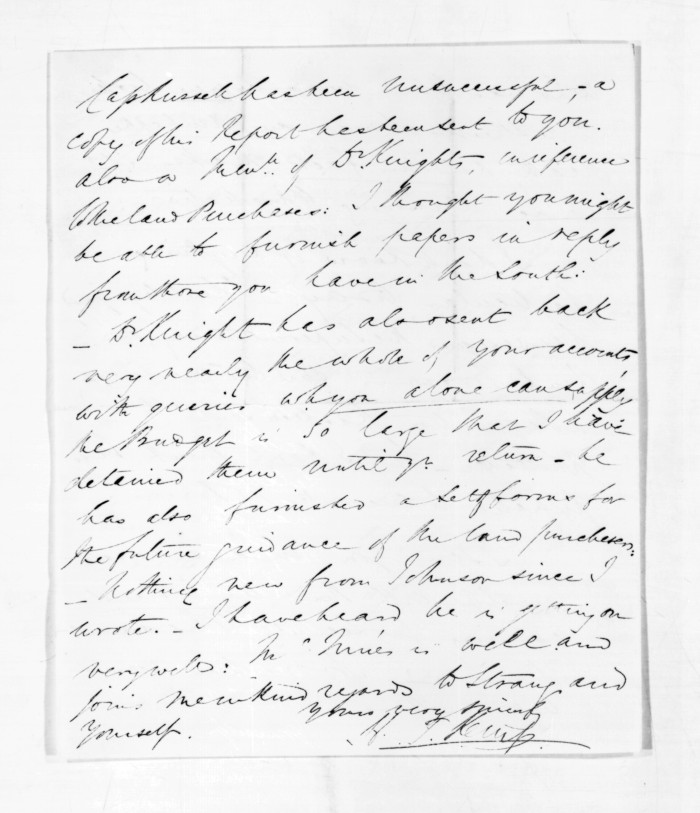 Cap Russell has been unsuccessful – a
copy of his Report has been sent to you.
also a Memm. of Dr. Knights, in reference
to the land Purchases: I thought you might
be able to furnish papers in reply
from those you have in the South:
– Dr. Knight has also sent back
very nearly the whole of your accounts
with queries wh you alone can supply
the Budget is so large that I have
detained them until yr. return – he
has also furnished a set of forms for
the future guidance of the land purchasers:
– Nothing new from Johnson since I
wrote. – I have heard he is getting on
very well: is well and
joins me in kind regards to Strang and
yourself. Yours very sincerely
Kemp